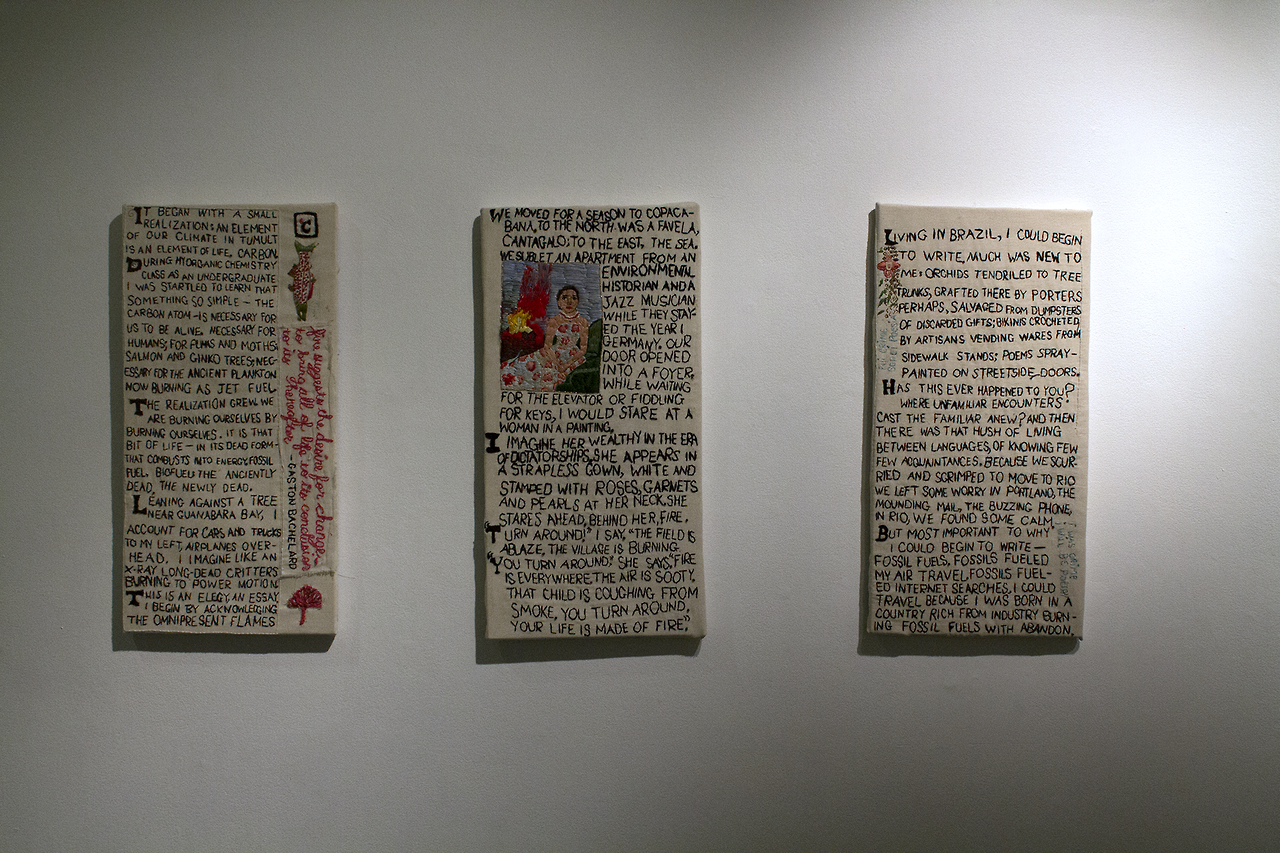 IT BEGAN WITH A SMALL
REALIZATION: AN ELEMENT
OF OUR CLIMATE IN TUMULT
IS AN ELEMENT OF LIFE. CARBON.
DURING MY ORGANIC CHEMISTRY
CLASS AS AN UNDERGRADUATE
I WAS STARTLED TO LEARN THAT
SOMETHING SO SIMPLE – THE
CARBON ATOM – IS NECESSARY FOR
US TO BE ALIVE. NECESSARY FOR
HUMANS; FOR PUMAS AND MOTHS;
SALMON AND GINKO TREES; NEC-
ESSARY FOR THE ANCIENT PLANKTON
NOW BURNING AS JET FUEL
THE REALIZATION GREW. WE
ARE BURNING OURSELVES BY
BURNING OURSELVES. IT IS THAT
BIT OF LIFE – IN ITS DEAD FORM –
THAT COMBUSTS INTO ENERGY. FOSSIL
FUEL. BIOFUEL. THE ANCIENTLY
DEAD, THE NEWLY DEAD.
LEANING AGAINST A TREE
NEAR GUANABARA BAY, I
ACCOUNT FOR CARS AND TRUCKS
TO MY LEFT, AIRPLANES OVER-
HEAD. I IMAGINE LIKE AN
X-RAY LONG-DEAD CRITTERS
BURNING TO POWER MOTION.
THIS IS AN ELEGY, AN ESSAY.
I BEGIN BY ACKNOWLEDGING
THE OMNIPRESENT FLAMES
C
Fire suggests the desire for change
to bring all of life to its conclusion
to its hereafter
-GASTON BACHELARD
WE MOVED FOR A SEASON TO COPACA-
BANA, TO THE NORTH WAS A FAVELA,
CANTAGALO; TO THE EAST, THE SEA.
WE SUBLET AN APARTMENT FROM AN
ENVIRONMENTAL
HISTORIAN AND A
JAZZ MUSICIAN
WHILE THEY STAY-
ED THE YEAR IN
GERMANY. OUR
DOOR OPENED
INTO A FOYER,
WHILE WAITING
FOR THE ELEVATOR OR FIDDLING
FOR KEYS, I WOULD STARE AT A
WOMAN IN A PAINTING.
I IMAGINE HER WEALTHY IN THE ERA
OF DICTATORSHIPS. SHE APPEARS IN
A STRAPLESS GOWN, WHITE AND
STAMPED WITH ROSES, GARNETS
AND PEARLS AT HER NECK. SHE
STARES AHEAD, BEHIND HER, FIRE.
"TURN AROUND!" I SAY, "THE FIELD IS
ABLAZE, THE VILLAGE IS BURNING.
"YOU TURN AROUND." SHE SAYS, "FIRE
IS EVERYWHERE. THE AIR IS SOOTY.
THAT CHILD IS COUGHING FROM
SMOKE, YOU TURN AROUND,
YOUR LIFE IS MADE OF FIRE."
LIVING IN BRAZIL, I COULD BEGIN
TO WRITE, MUCH WAS NEW TO
ME: ORCHIDS TENDRILED TO TREE
TRUNKS, GRAFTED THERE BY PORTERS
PERHAPS, SALVAGED FROM DUMPSTERS
OF DISCARDED GIFTS; BIKINIS CROCHETED
BY ARTISANS VENDING WARES FROM
SIDEWALK STANDS; POEMS SPRAY-
PAINTED ON STREETSIDE DOORS.
HAS THIS EVER HAPPENED TO YOU?
WHERE UNFAMILIAR ENCOUNTERS
CAST THE FAMILIAR ANEW? AND THEN
THERE WAS THAT HUSH OF LIVING
BETWEEN LANGUAGES, OF KNOWING FEW
FEW ACQUAINTANCES, BECAUSE WE SCUR-
RIED AND SCRIMPED TO MOVE TO RIO
WE LEFT SOME WORRY IN PORTLAND, THE
MOUNDING MAIL, THE BUZZING PHONE,
IN RIO, WE FOUND SOME CALM.
BUT MOST IMPORTANT TO WHY
I COULD BEGIN TO WRITE –
FOSSIL FUELS, FOSSILS FUELED
MY AIR TRAVEL, FOSSILS FUEL-
ED INTERNET SEARCHES, I COULD
TRAVEL BECAUSE I WAS BORN IN A
COUNTRY RICH FROM INDUSTRY BURN-
ING FOSSIL FUELS WITH ABANDON.